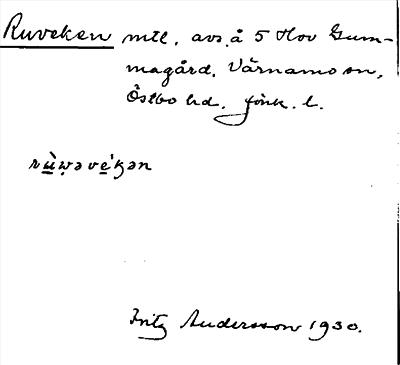 Ruveken mtl. avs. å 5 Hov Gum-
magård. Värnamo sn,
Östbo hd. Jönk. l.
rù̱w̩əve̱'ʒən
Fritz Andersson 1930.